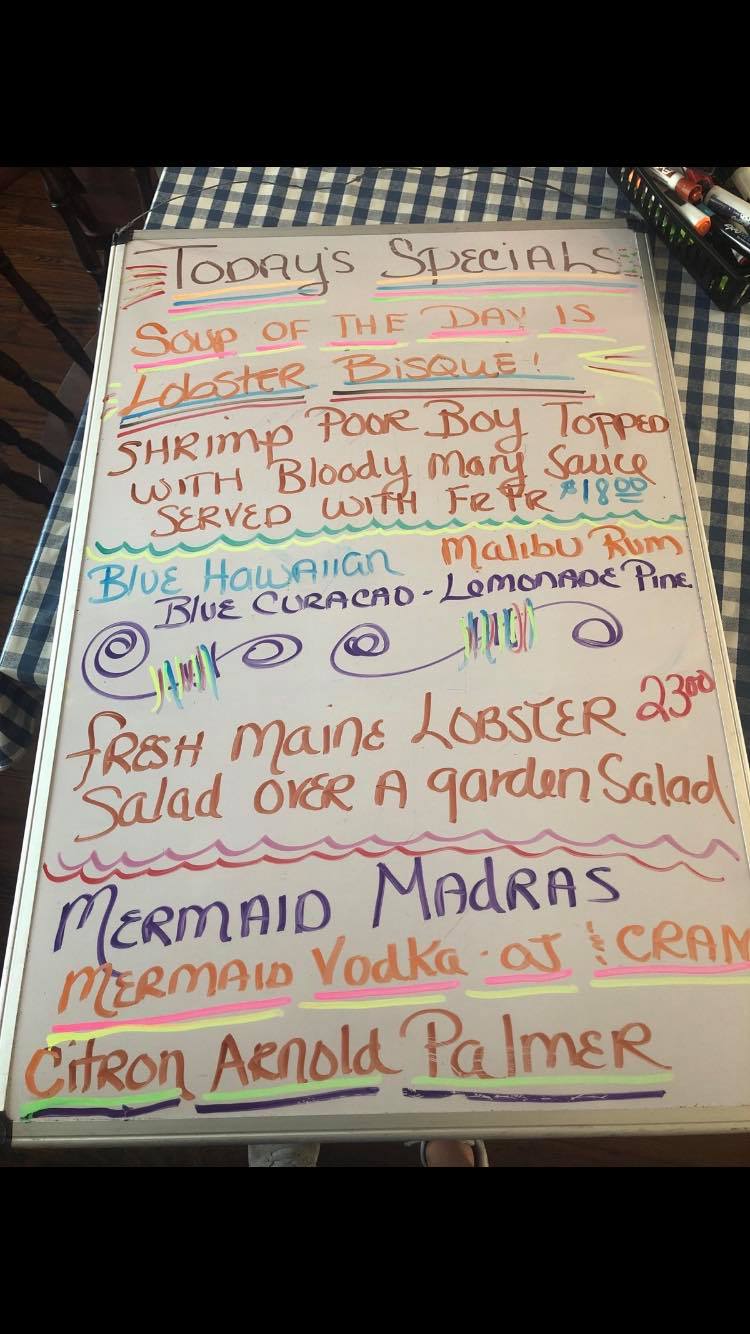 Today's Specials
Soup of the Day is
Lobster Bisque!
Shrimp Poor Boy Topped
with Bloody Mary Sauce
Served with Fr Fr $18.00
Blue Hawaiian Malibu Rum
Blue Curacao - Lemonade Pine
Fresh Maine Lobster 23.00
Salad over a garden Salad
Mermaid Madras
Mermaid Vodka - OJ & CRAN
Citron Arnold Palmer